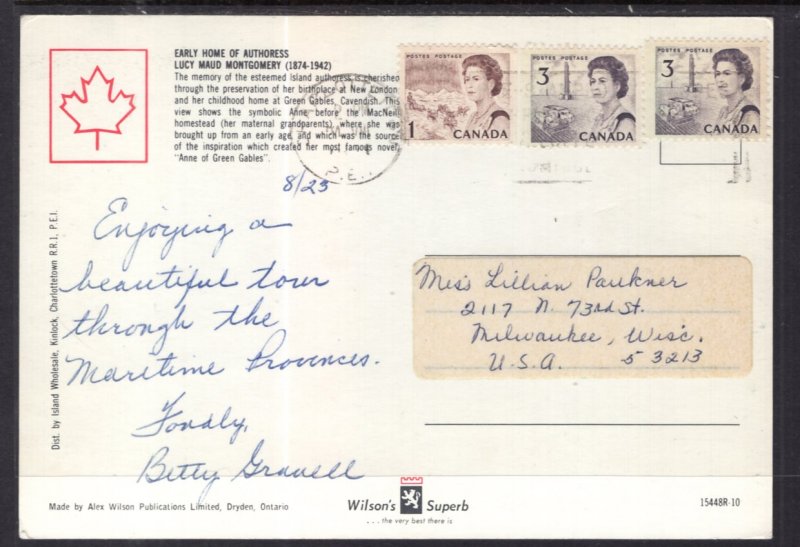 EARLY HOME OF AUTHORESS
LUCY MAUD MONTGOMERY (1874-1942)
The memory of the esteemed Island authoress is cherished
through the preservation of her birthplace at New London,
and her childhood home at Green Gables, Cavendish. This
view shows the symbolic Anne before the MacNeil
homestead (her maternal grandparents), where she was
brought up from an early age, and which was the source
of the inspiration which created her most famous novel,
"Anne of Green Gables".
POSTES POSTAGE
1 CANADA
POSTES POSTAGE
3
CANADA
POSTES POSTAGE
3
CANADA
P.E.I.
8/23
Enjoying a
beautiful tour
through the
Maritime Provinces.
Fondly,
Betty Gravell
Miss Lillian Paukner
2117 N. 73rd St.
Milwaukee, Wisc.
U.S.A. 53213
Dist. by Island Wholesale, Kinlock, Charlottetown R.R.1, P.E.I.
Made by Alex Wilson Publications Limited, Dryden, Ontario
Wilson's Superb
...the very best there is
15448R-10